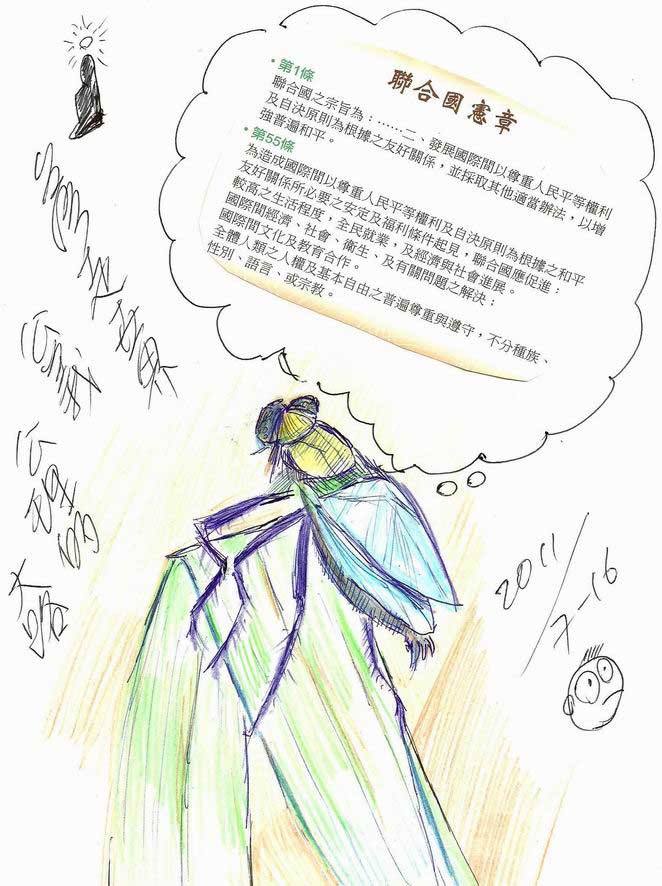 聯合國憲章
• 第1條
聯合國之宗旨為：……二、發展國際間以尊重人民平等權利
及自決原則為根據之友好關係，並採取其他適當辦法，以增
強普遍和平。
• 第55條
為造成國際間以尊重人民平等權利及自決原則為根據之和平
友好關係所必要之安定及福利條件起見，聯合國應促進：
較高之生活程度，全民就業，及經濟與社會進展。
國際間經濟、社會、衛生、及有關問題之解決；
國際間文化及教育合作。
全體人類之人權及基本自由之普遍尊重與遵守，不分種族、
性別、語言、或宗教。
2011
7-16